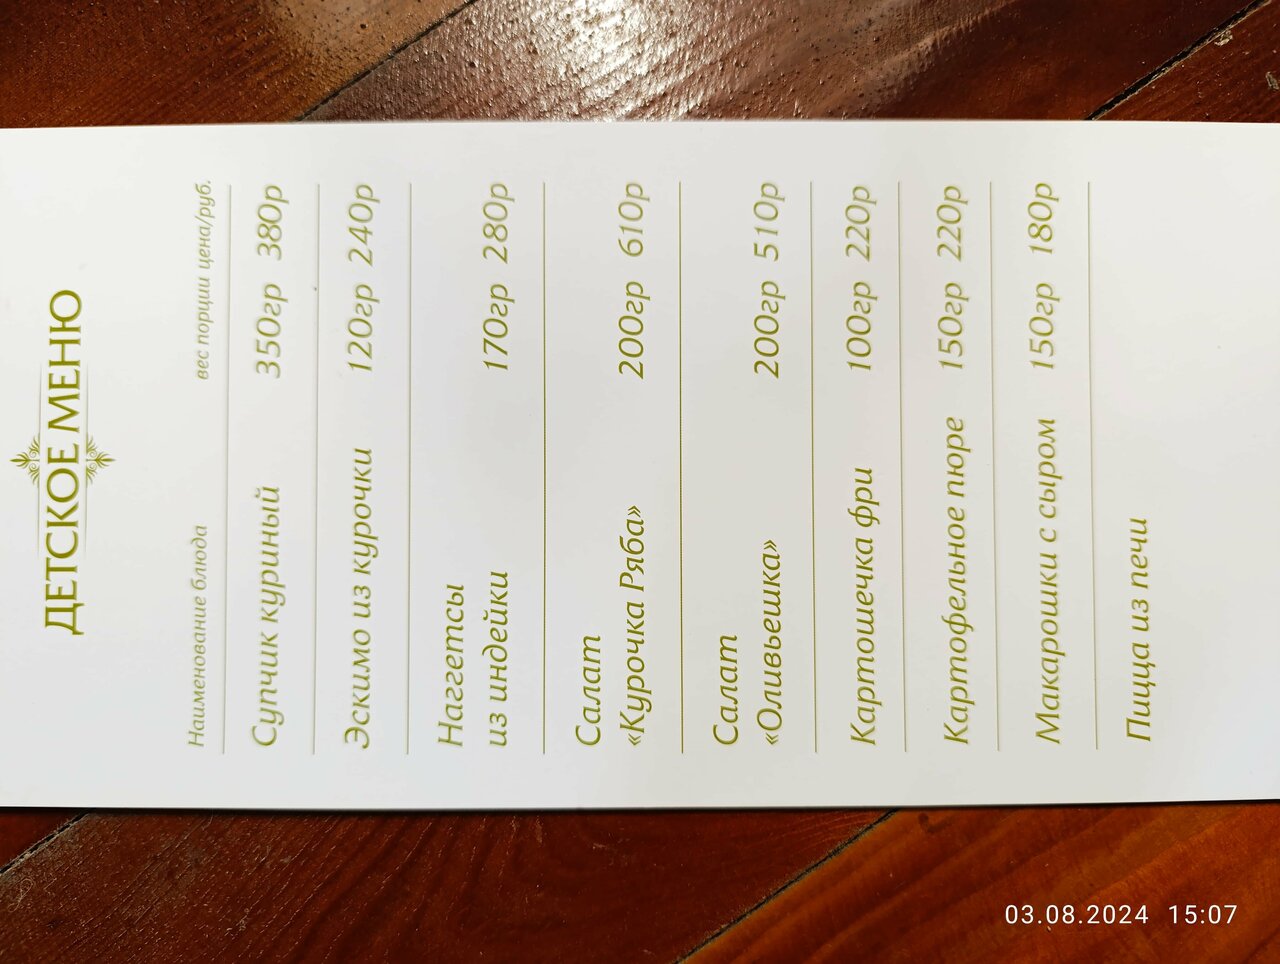 ДЕТСКОЕ МЕНЮ
Наименование блюда вес порции цена/руб.
Супчик куриный 350гр 380р
Эскимо из курочки 120гр 240р
Наггетсы
из индейки 170гр 280р
Салат
«Курочка Ряба» 200гр 610р
Салат
«Оливьешка» 200гр 510р
Картошечка фри 100гр 220р
Картофельное пюре 150гр 220р
Макарошки с сыром 150гр 180р
Пицца из печи
03.08.2024 15:07